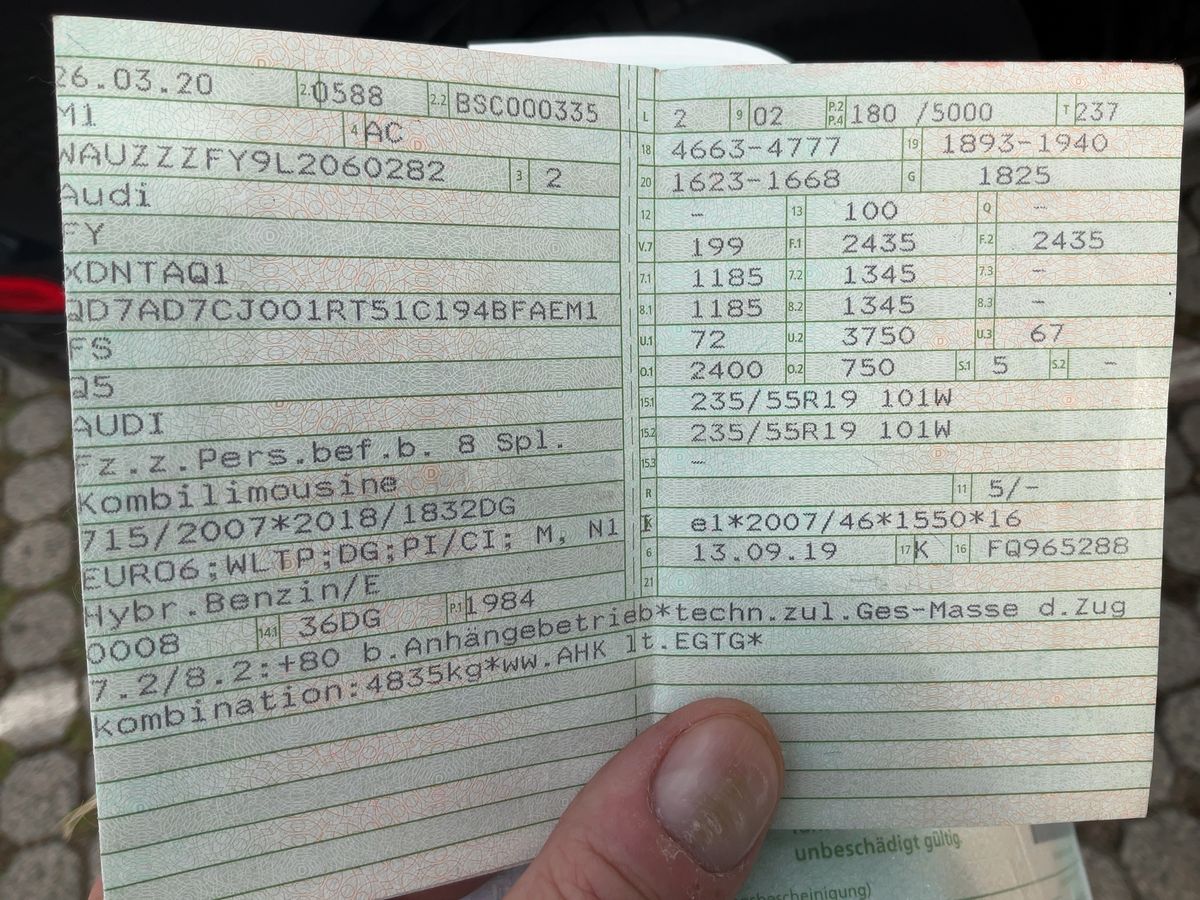 26.03.20 2.1 0588 2.2 BSC000335
M1 4 AC
WAUZZZFY9L2060282 3 2
Audi
FY
XDNTAQ1
QD7AD7CJ001RT51C194BFAEM1
FS
Q5
AUDI
Fz.z.Pers.bef.b. 8 Spl.
Kombilimousine
715/2007*2018/1832DG
EURO6;WLTP;DG;PI/CI; M, N1
Hybr.Benzin/E
0008 14.1 36DG P.1 1984
L 2 9 02 P.2 P.4 180 /5000 T 237
18 4663-4777 19 1893-1940
20 1623-1668 G 1825
12 - 13 100 Q -
V.7 199 F.1 2435 F.2 2435
7.1 1185 7.2 1345 7.3 -
8.1 1185 8.2 1345 8.3 -
U.1 72 U.2 3750 U.3 67
O.1 2400 O.2 750 S.1 5 S.2 -
15.1 235/55R19 101W
15.2 235/55R19 101W
15.3 -
R 11 5/-
K e1*2007/46*1550*16
6 13.09.19 17 K 16 FQ965288
21
7.2/8.2:+80 b.Anhängebetrieb*techn.zul.Ges-Masse d.Zug
kombination:4835kg*ww.AHK lt.EGTG*
unbeschädigt gültig